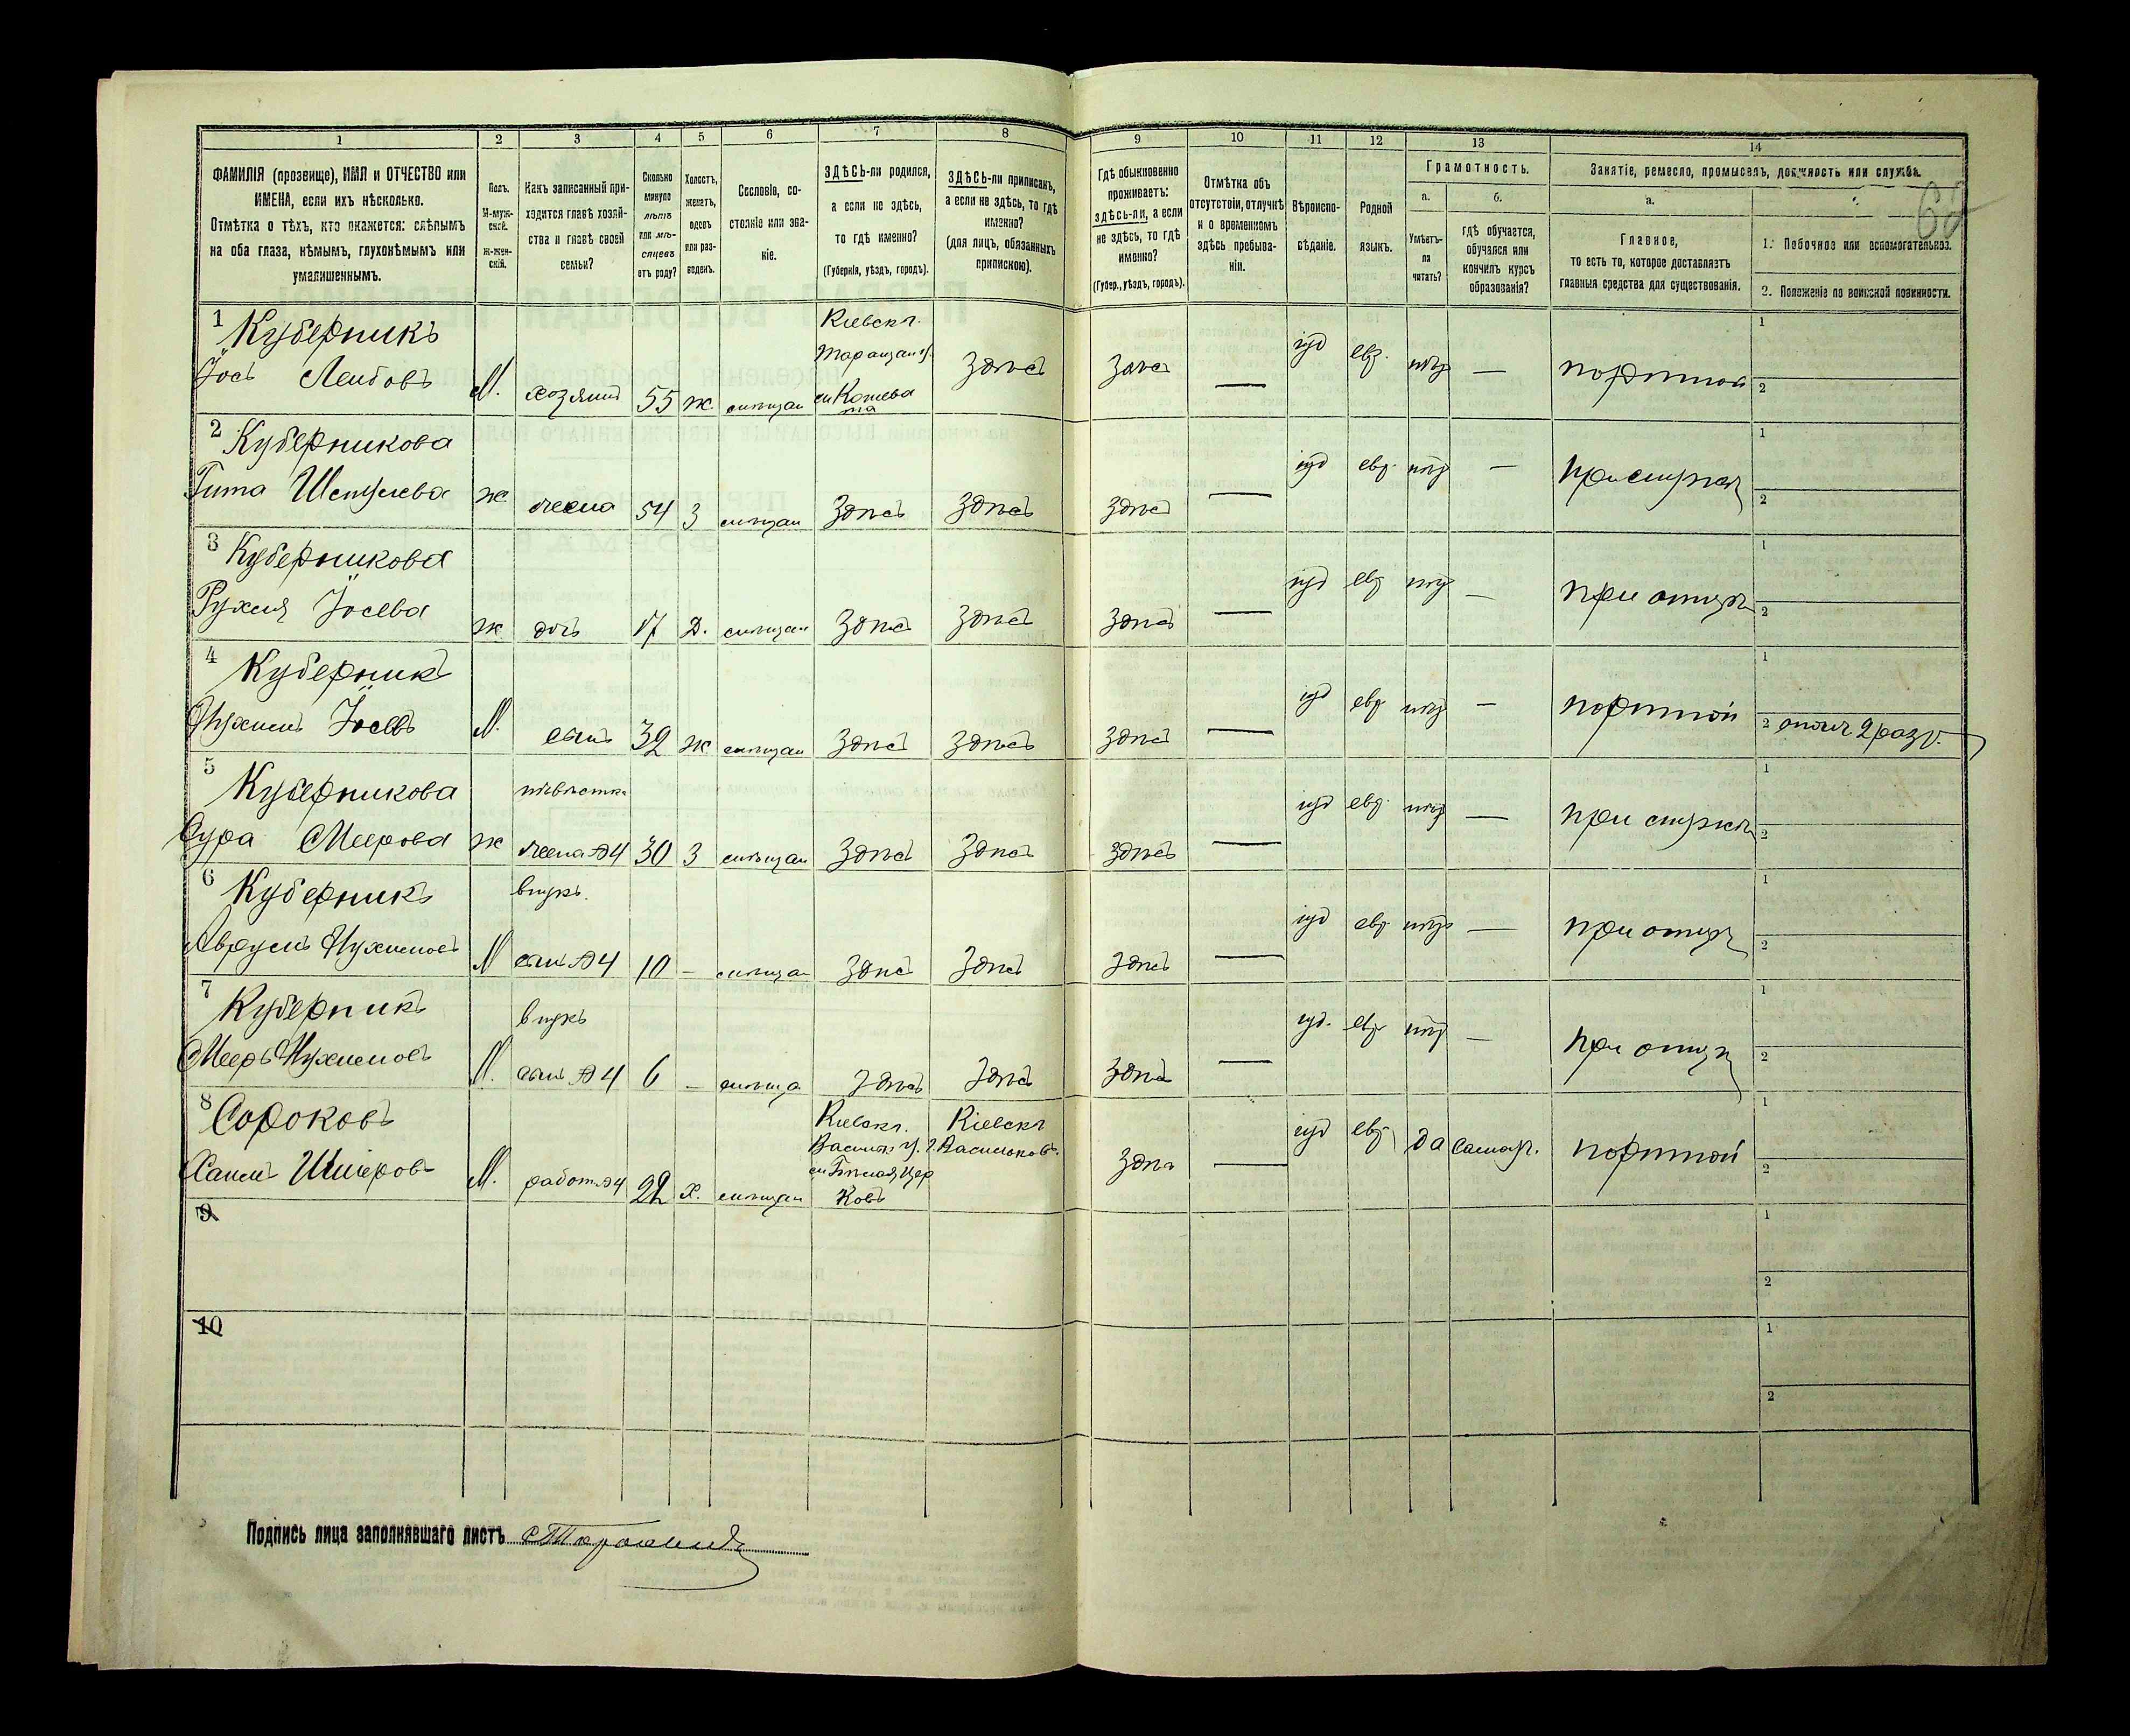 1 2 3 4 5 6 7 8 9 10 11 12 13 14
ФАМИЛІЯ (прозвище), ИМЯ и ОТЧЕСТВО или
ИМЕНА, если ихъ нѣсколько.
Отмѣтка о тѣхъ, кто окажется: слѣпымъ
на оба глаза, нѣмымъ, глухонѣмымъ или
умалишеннымъ.
Полъ.
М-муж-
ской.
Ж-жен-
скій.
Какъ записанный при-
ходится главѣ хозяй-
ства и главѣ своей
семьи?
Сколько
минуло
лѣтъ
или мѣ-
сяцевъ
отъ роду?
Холостъ,
женатъ,
вдовъ
или раз-
веденъ.
Сословіе, со-
стояніе или зва-
ніе.
ЗДѢСЬ-ли родился,
а если не здѣсь,
то гдѣ именно?
(Губернія, уѣздъ, городъ).
ЗДѢСЬ-ли приписанъ,
а если не здѣсь, то гдѣ
именно?
(для лицъ, обязанныхъ
припиской).
Гдѣ обыкновенно
проживаетъ:
здѣсь-ли, а если
не здѣсь, то гдѣ
именно?
(Губер., уѣздъ, городъ).
Отмѣтка объ
отсутствіи, отлучкѣ
и о временномъ
здѣсь пребыва-
ніи.
Вѣроиспо-
вѣданіе.
Родной
языкъ.
Грамотность.
а.
Умѣетъ-
ли
читать?
б.
гдѣ обучается,
обучался или
кончилъ курсъ
образованія?
Занятіе, ремесло, промыселъ, должность или служба.
а.
Главное,
то есть то, которое доставляетъ
главныя средства для существованія.
1. Побочное или вспомогательное.
2. Положеніе по воинской повинности.
1 Куберникъ Кіевск г.
Таращан у.
Іось Лейбовъ М. хозяинъ 55 ж. мѣщан м Кошева здѣсь здѣсь — іуд евр. нѣтъ — портной
та
2 Куберникова
Гита Шмулева ж жена 54 З мѣщан здѣсь здѣсь здѣсь — іуд евр. нѣтъ —
3 Куберникова
Рухля Іосева ж дочь 17 Д. мѣщан здѣсь здѣсь здѣсь — іуд евр нѣтъ — при отцѣ
4 Куберникъ
Нухимъ Іосевъ М. сынъ 32 ж мѣщан здѣсь здѣсь здѣсь — іуд евр нѣтъ — портной 2 ополч 2 разр.
5 Куберникова невѣстка
Сура Меерова ж жена №4 30 З мѣщан здѣсь здѣсь здѣсь — іуд евр. нѣтъ —
6 Куберникъ внукъ.
Аврумъ Нухимовъ М сынъ №4 10 — мѣщан здѣсь здѣсь здѣсь — іуд евр нѣтъ — при отцѣ
7 Куберникъ внукъ
Мееръ Нухимовъ М. сынъ №4 6 — мѣща здѣсь здѣсь здѣсь — іуд. евр нѣтъ — при отцѣ
8 Сороковъ Кіевск г. Кіевск г
Васильк у. г. Васильковъ.
м Бѣлая Цер
Хаимъ М. работ №4 22 Х. мѣщан ковь здѣсь — іуд евр да самоуч. портной
9
10
Подпись лица заполнявшаго листъ